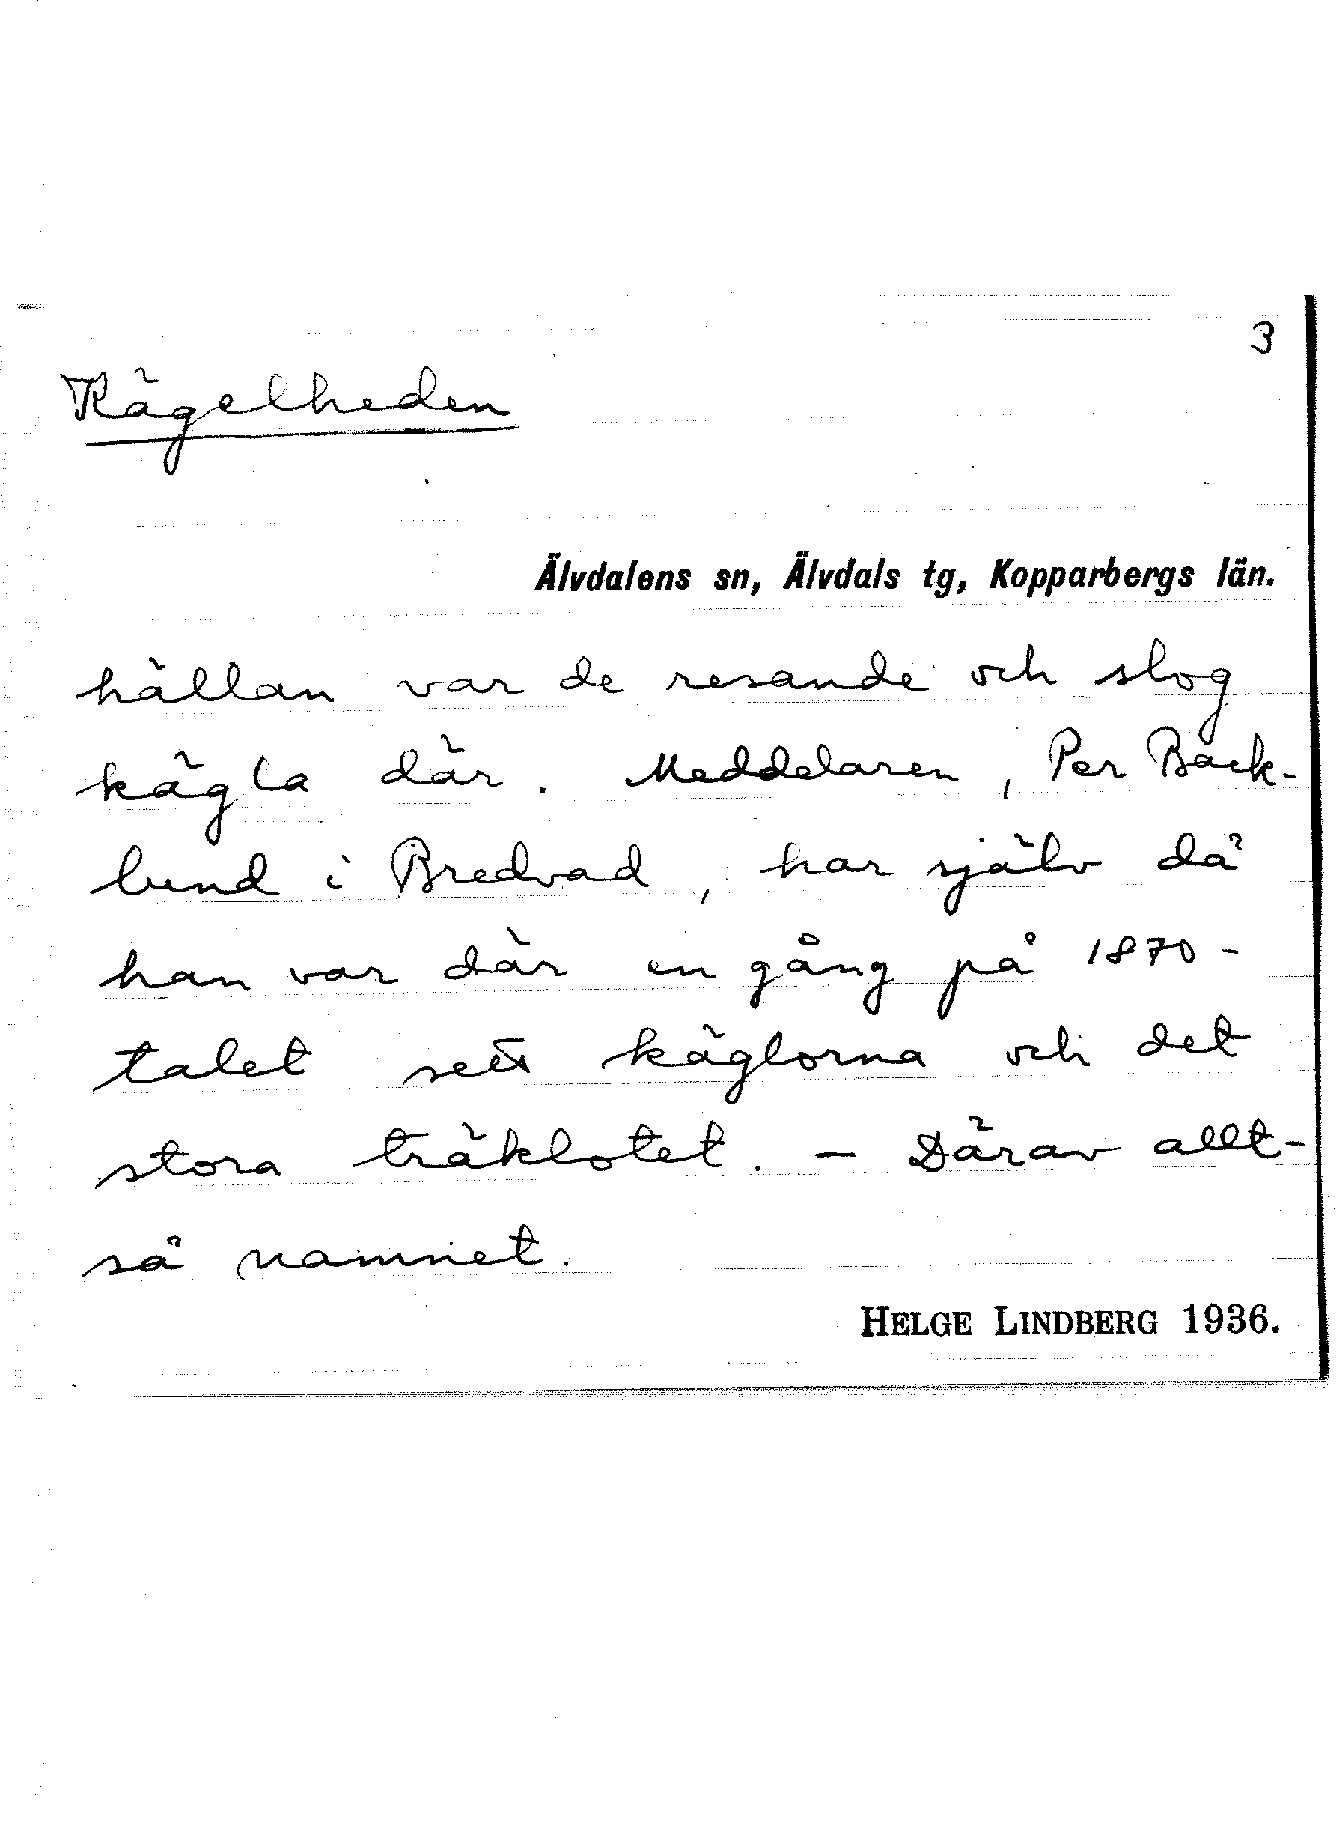 3
Kägelheden
Älvdalens sn, Älvdals tg, Kopparbergs län.
hällan var de resande och slog
kägla där. Meddelaren, Per Back-
lund i Bredvad, har själv då
han var där en gång på 1870-
talet sett käglorna och det
stora träklotet. – Därav allt-
så namnet.
HELGE LINDBERG 1936.